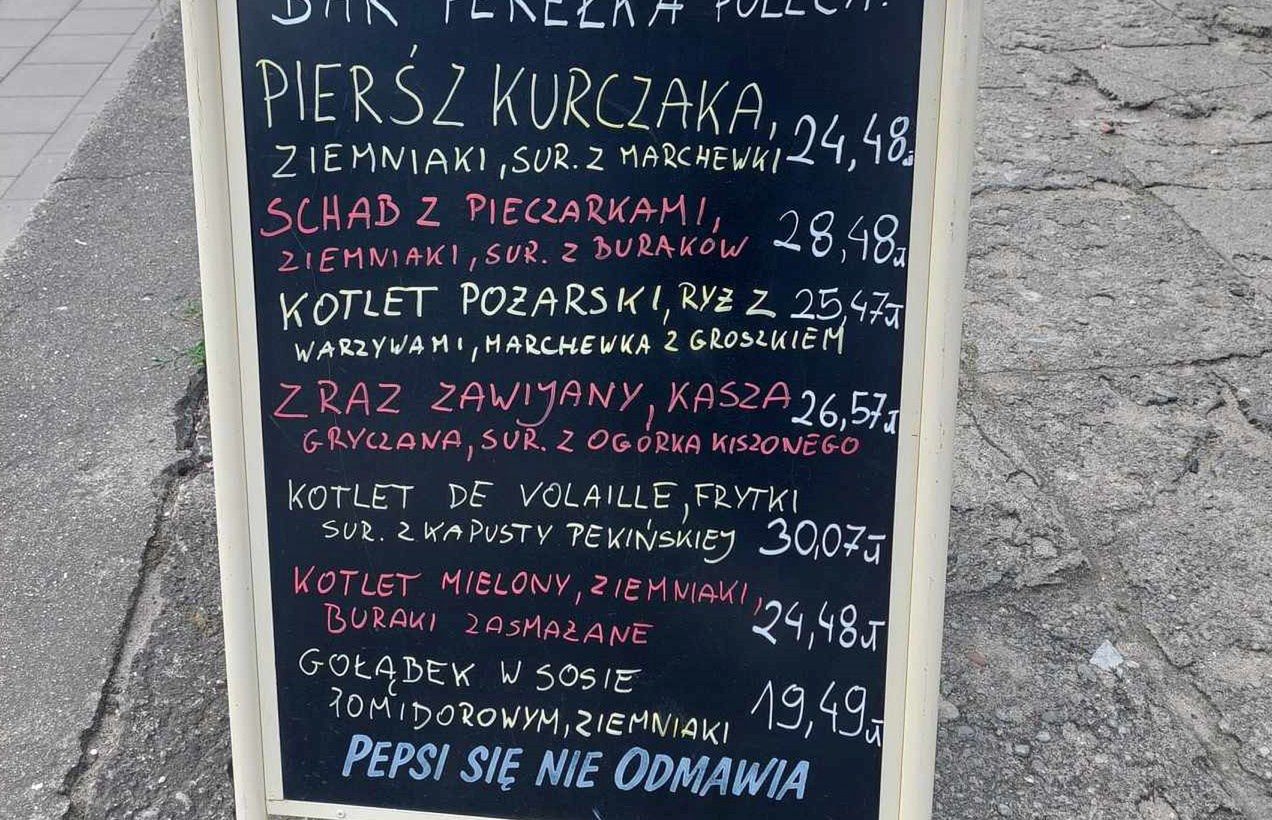 BAR PEREŁKA POLECA:
PIERŚ Z KURCZAKA,
ZIEMNIAKI, SUR. Z MARCHEWKI 24,48zł
SCHAB Z PIECZARKAMI,
ZIEMNIAKI, SUR. Z BURAKÓW 28,48zł
KOTLET POŻARSKI, RYŻ Z 25,47zł
WARZYWAMI, MARCHEWKA Z GROSZKIEM
ZRAZ ZAWIJANY, KASZA 26,57zł
GRYCZANA, SUR. Z OGÓRKA KISZONEGO
KOTLET DE VOLAILLE, FRYTKI
SUR. Z KAPUSTY PEKIŃSKIEJ 30,07zł
KOTLET MIELONY, ZIEMNIAKI,
BURAKI ZASMAŻANE 24,48zł
GOŁĄBEK W SOSIE
POMIDOROWYM, ZIEMNIAKI 19,49zł
PEPSI SIĘ NIE ODMAWIA